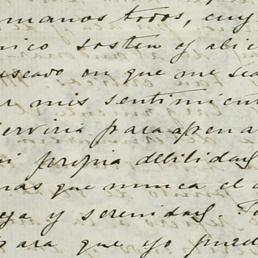 manos todos, cuy
nico sosten y abri
uscado en que me sea
r mis sentimient
serviria para apenar
i propia debilidad
nas que nunca el a
eja y serenidad
para que yo pued